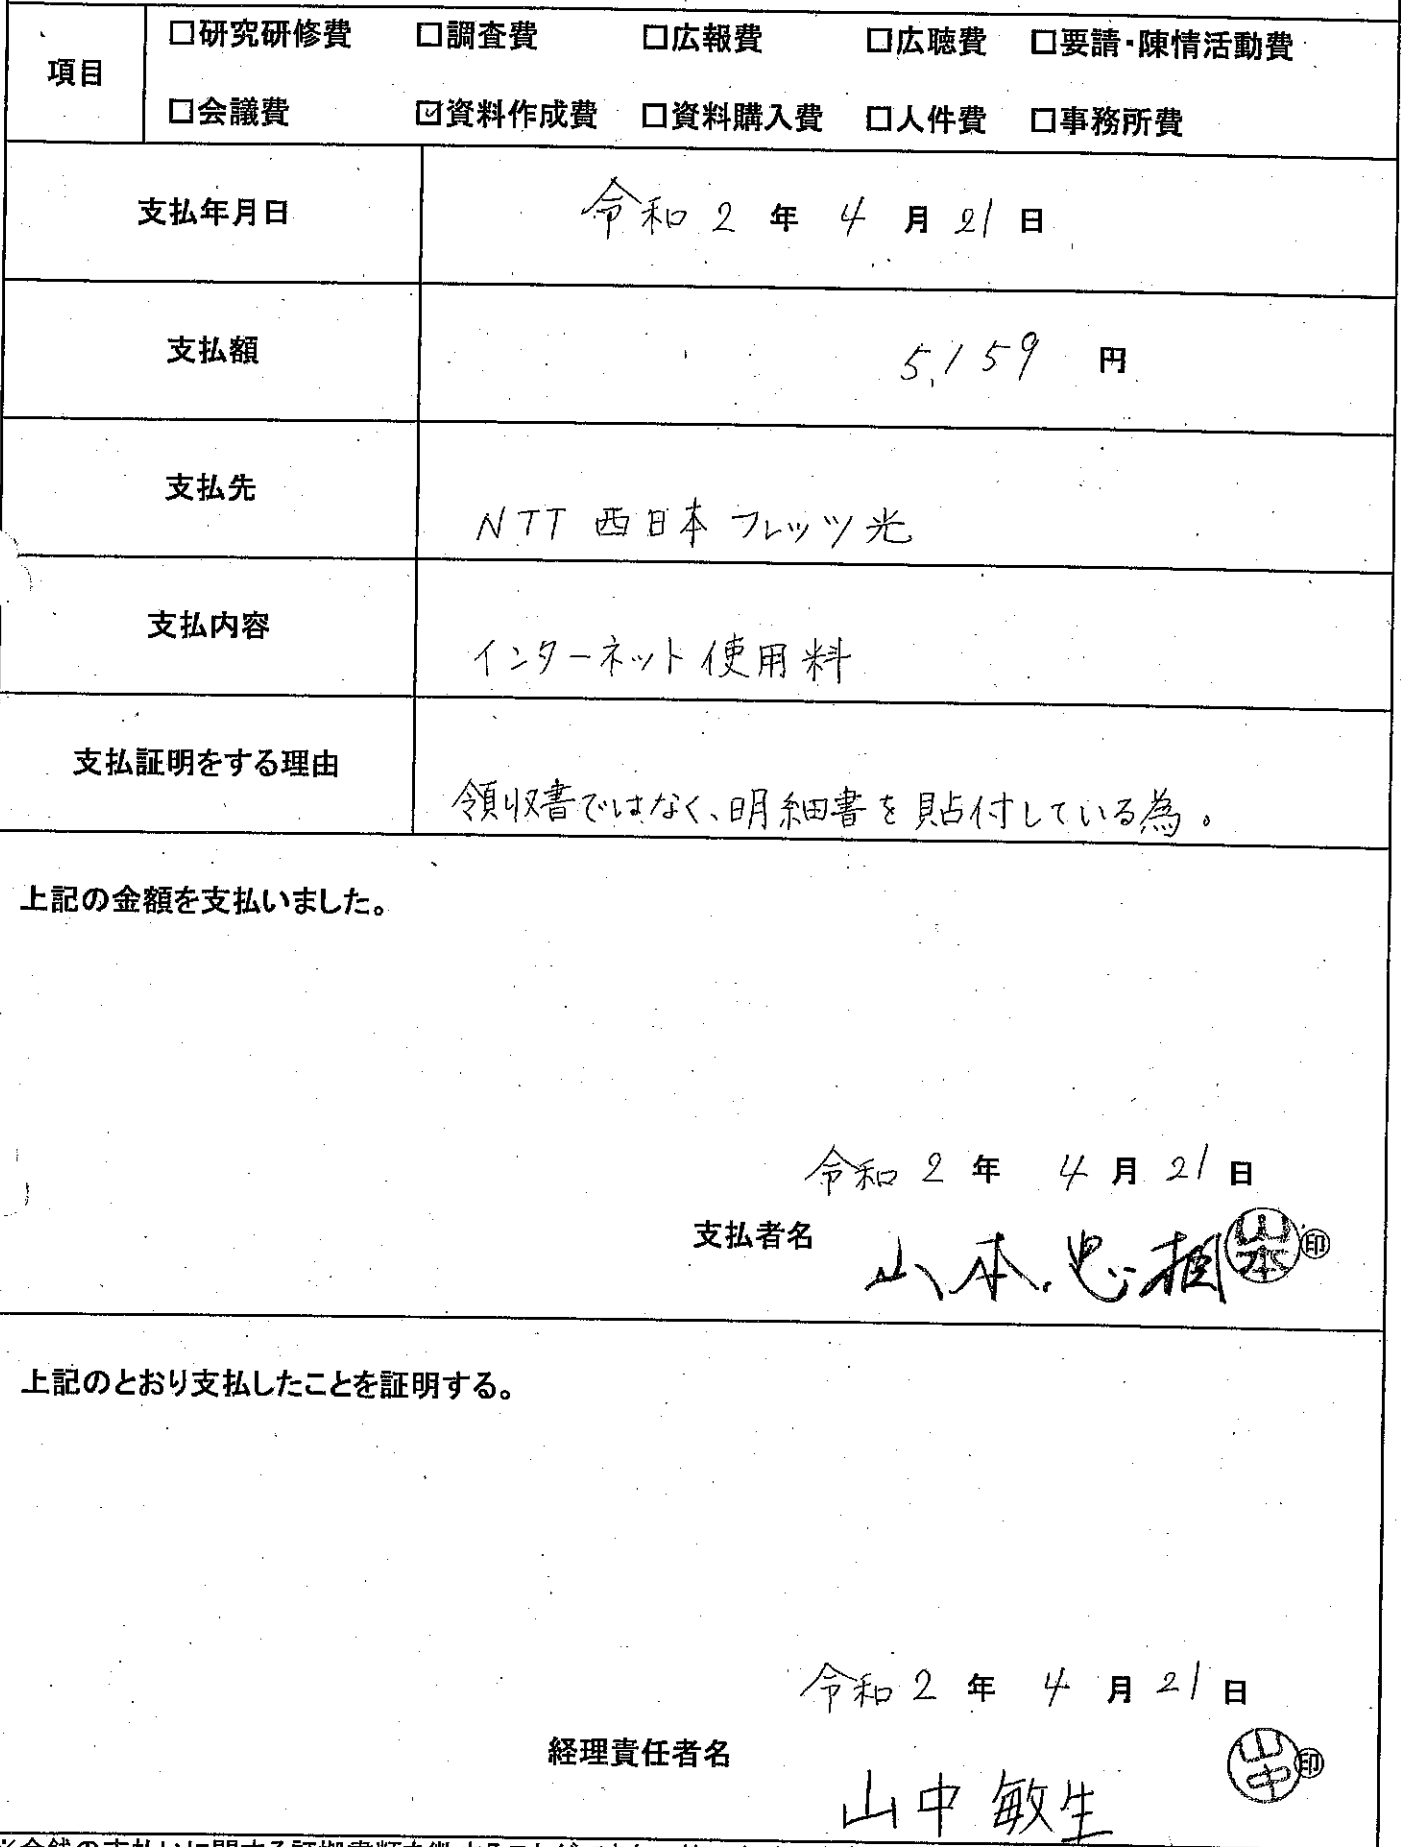 項目
□研究研修費 □調査費 □広報費 □広聴費 □要請・陳情活動費
□会議費 ☑資料作成費 □資料購入費 □人件費 □事務所費
支払年月日 令和 2 年 4 月 21 日
支払額 5,159 円
支払先 NTT 西日本 フレッツ光
支払内容 インターネット使用料
支払証明をする理由 領収書ではなく、明細書を貼付している為。
上記の金額を支払いました。
令和 2 年 4 月 21 日
支払者名 山本 忠相 山本 ㊞
上記のとおり支払したことを証明する。
令和 2 年 4 月 21 日
経理責任者名 山中 敏生 山中 ㊞